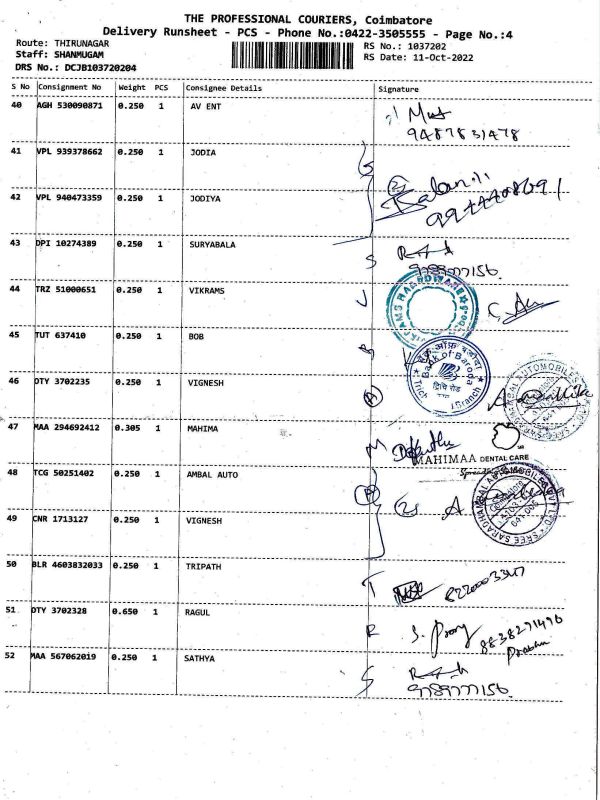 THE PROFESSIONAL COURIERS, Coimbatore
Delivery Runsheet - PCS - Phone No.:0422-3505555 - Page No.:4
Route: THIRUNAGAR
RS No.: 1037202
Staff: SHANMUGAM
RS Date: 11-Oct-2022
DRS No.: DCJB103720204
S No Consignment No Weight PCS Consignee Details Signature
40 AGH 530090871 0.250 1 AV ENT
9487831478
41 VPL 939378662 0.250 1 JODIA
42 VPL 940473359 0.250 1 JODIYA
43 DPI 10274389 0.250 1 SURYABALA
S
9789777156
44 TRZ 51000651 0.250 1 VIKRAMS
V
VIKRAMS HARDWARE
45 TUT 637410 0.250 1 BOB
B
Bank of Baroda
46 DTY 3702235 0.250 1 VIGNESH
A
47 MAA 294692412 0.305 1 MAHIMA
M
MAHIMAA DENTAL CARE
48 TCG 50251402 0.250 1 AMBAL AUTO
SREE SARADHAMBAL AUTOMOBILES PVT LTD
49 CNR 1713127 0.250 1 VIGNESH
50 BLR 4603832033 0.250 1 TRIPATH
T
51 DTY 3702328 0.650 1 RAGUL
R
8838271490
Prabhu
52 MAA 567062019 0.250 1 SATHYA
S
9789777156